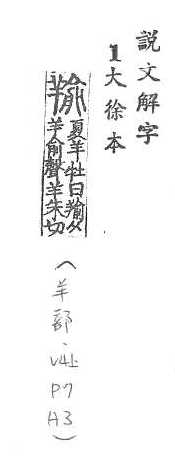 説文解字
1大徐本
羭
夏羊牡曰羭从
羊俞聲羊朱切
(羊部、V4上 P7 A3)